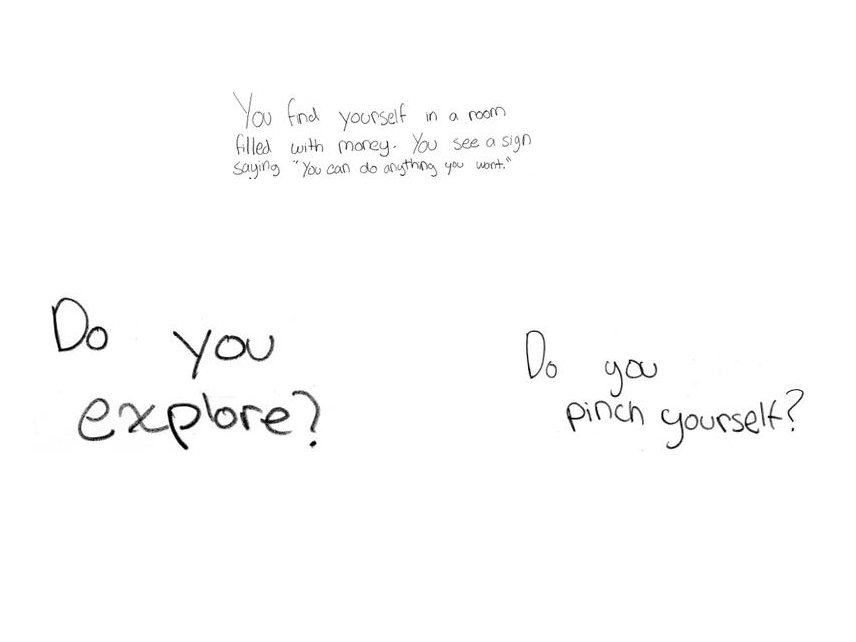 You find yourself in a room
filled with money. You see a sign
saying "You can do anything you want."
Do you
explore?
Do you
pinch yourself?